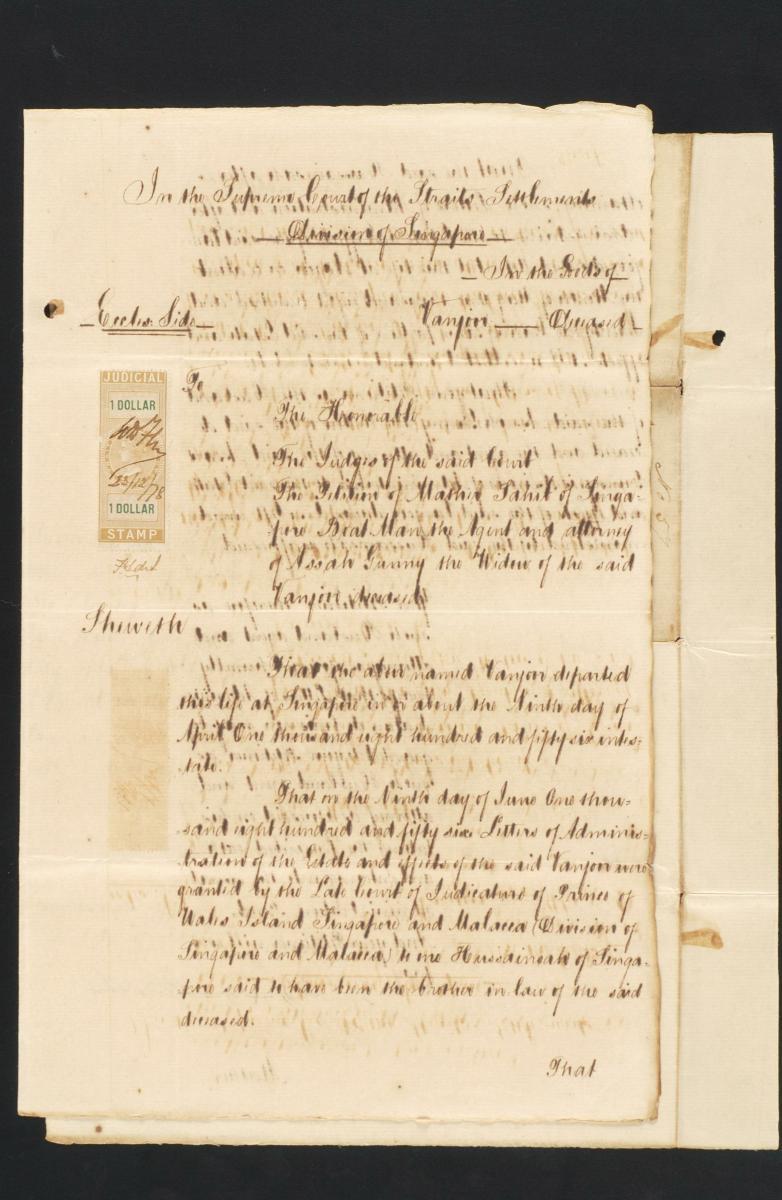 In the Supreme Court of the Straits Settlements
Division of Singapore
In the Goods of
Eccles. Side
Vanjoor Deceased
JUDICIAL
1 DOLLAR
23/12/78
1 DOLLAR
STAMP
To
The Honorable
The Judges of the said Court
The Petition of Mathie Tahil of Singa-
pore Boat Man the Agent and attorney
of Assah Gunny the Widow of the said
Vanjoor deceased
Sheweth
That the above named Vanjoor departed
this life at Singapore on or about the Ninth day of
April One thousand eight hundred and fifty six intes-
tate.
That on the Ninth day of June One thou-
sand eight hundred and fifty six Letters of Adminis-
tration of the Estate and effects of the said Vanjoor were
granted by the Late Court of Judicature of Prince of
Wales Island Singapore and Malacca (Division of
Singapore and Malacca) to one Hussainsah of Singa-
pore said to have been the brother in law of the said
deceased.
That